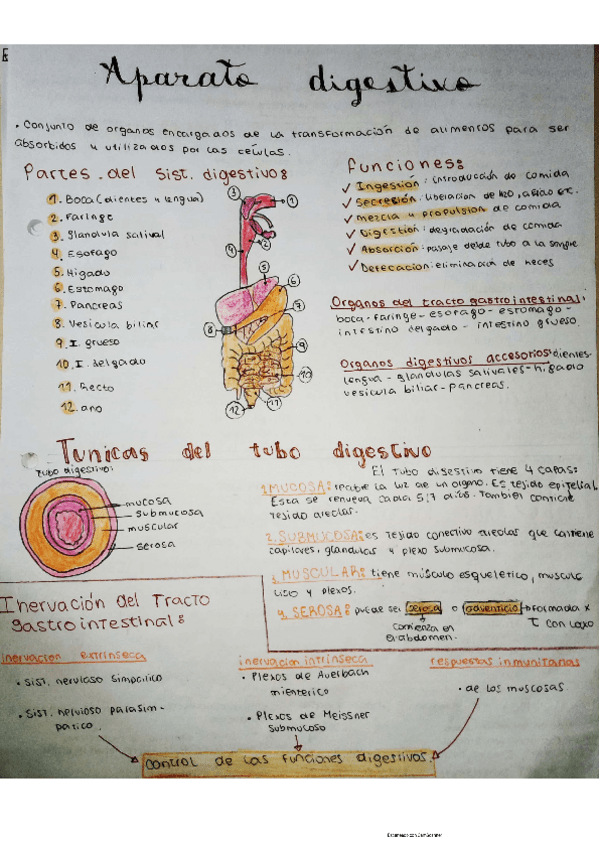 Aparato digestivo
• Conjunto de organos encargados de la transformación de alimentos para ser
absorbidos y utilizados por las células.
Partes del Sist. digestivo:
1. Boca (dientes y lengua)
2. Faringe
3. Glandula salival
4. Esofago
5. Higado
6. Estomago
7. Pancreas
8. Vesicula biliar
9. I. grueso
10. I. delgado
11. Recto
12. ano
3
1
2
4
5
6
7
8
9
10
12
11
Funciones:
✓ Ingestión: introducción de comida
✓ Secresión: liberación de H2O, acido etc.
✓ mezcla y propulsion de comida
✓ Digestión: degradación de comida
✓ Absorción: pasaje desde tubo a la sangre
✓ Defecación: eliminación de heces
Organos del tracto gastrointestinal:
boca - faringe - esofago - estomago -
intestino delgado - intestino grueso.
Organos digestivos accesorios: dientes-
lengua - glandulas salivales - higado
vesicula biliar - pancreas.
Tunicas del tubo digestivo
tubo digestivo:
mucosa
submucosa
muscular
serosa
El tubo digestivo tiene 4 capas:
1. MUCOSA: recubre la luz de un organo. Es tejido epitelial
Esta se renueva cada 5/7 dias. Tambien contiene
tejido areolar.
2. SUBMUCOSA: es tejido conectivo areolar que contiene
capilares, glandulas y plexo submucosa.
3. MUSCULAR: tiene músculo esquelético, musculo
liso y plexos.
4. SEROSA: puede ser serosa o adventicia → formada x
T con laxo
comienza en
el abdomen.
Inervación del Tracto
gastrointestinal:
inervacion extrinseca
• Sist. nervioso simpatico
• Sist. nervioso parasim-
patico.
inervacion intrinseca
• Plexos de Auerbach
mienterico
• Plexos de Meissner
submucoso
respuestas inmunitarias
• de las muscosas
Control de las funciones digestivas.
Escaneado con CamScanner